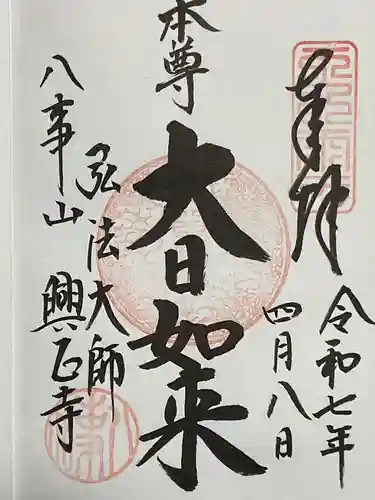 奉拝
令和七年
四月八日
本尊
大日如来
弘法大師
八事山
興正寺